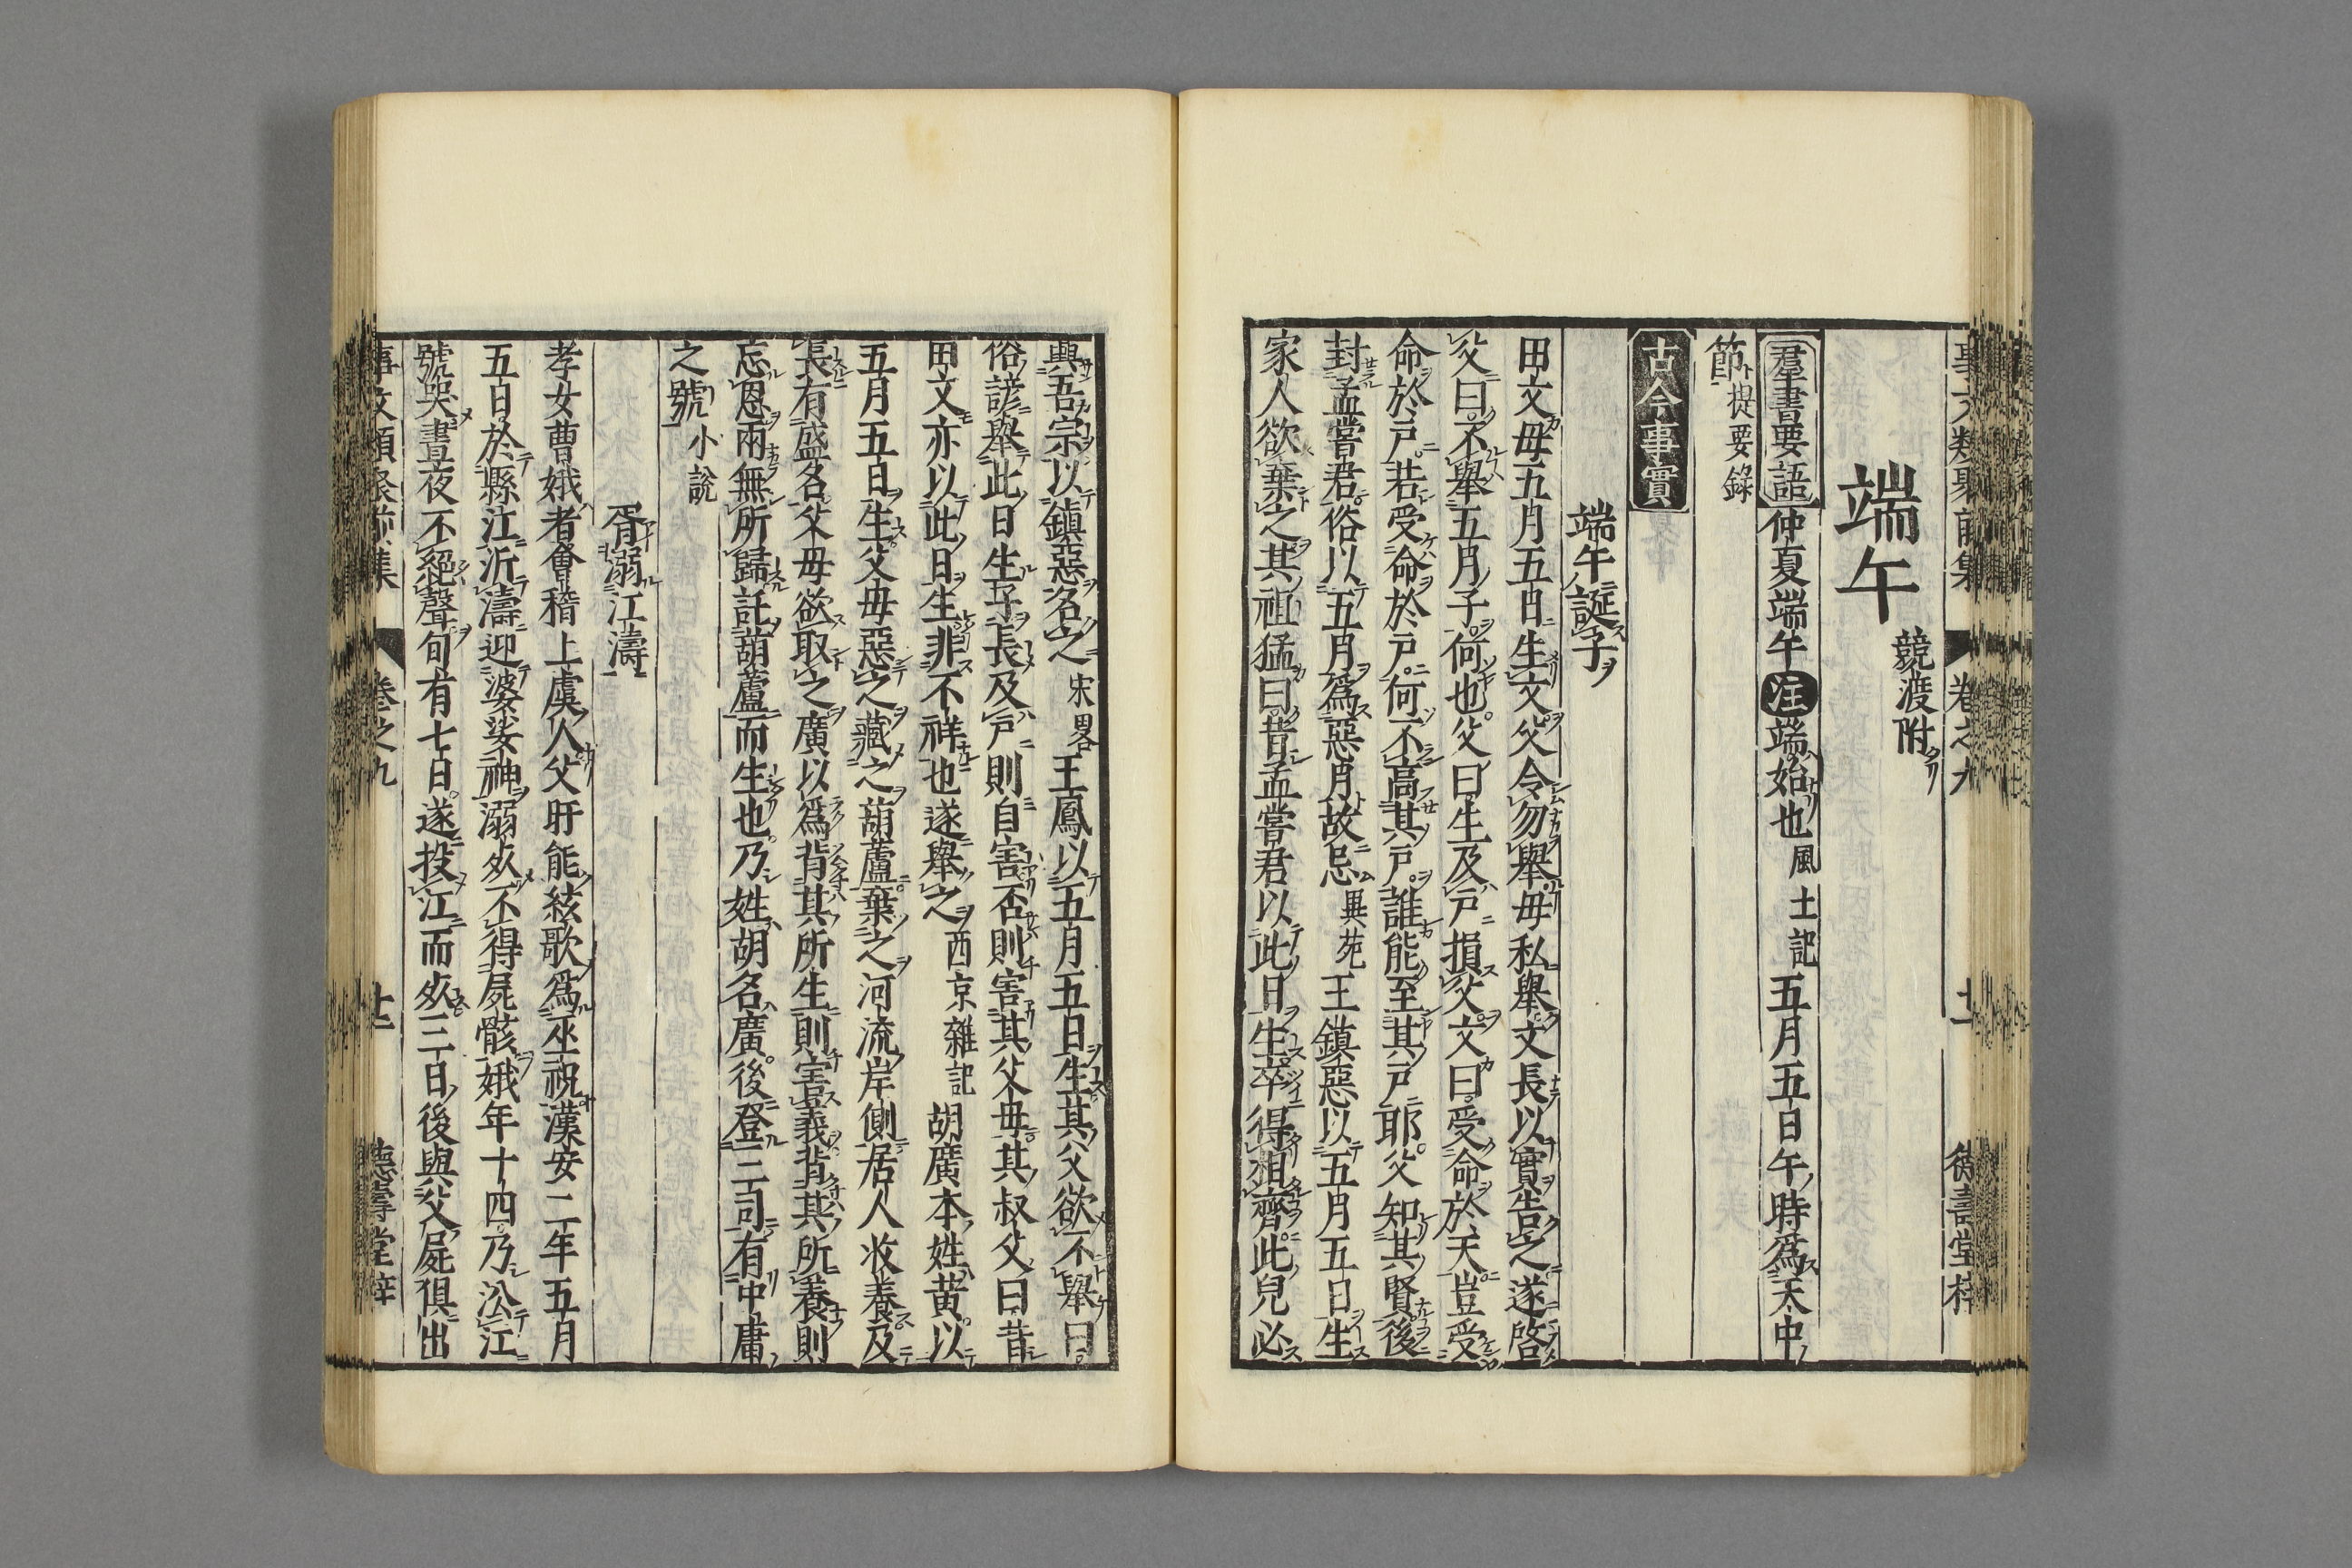 事文類聚前集 卷之九 十二 德壽堂梓
端午 競渡附
羣書要語 仲夏端午注端始也風土記五月五日午時爲天中
節提要錄
古今事實
端午誕子
田文母五月五日生文父令勿舉母私舉文長以實告之遂啓
父曰不舉五月子何也父曰生及戸損父文曰受命於天豈受
命於戸若受命於戸何不高其戸誰能至其戸耶父知其賢後
封孟嘗君俗以五月爲惡月故忌異苑王鎮惡以五月五日生
家人欲棄之其祖猛曰昔孟嘗君以此日生卒得相齊此兒必
興吾宗以鎮惡名之宋畧王鳳以五月五日生其父欲不舉曰
俗諺舉此日生子長及戸則自害否則害其父母其叔父曰昔
田文亦以此日生非不祥也遂舉之西京雜記胡廣本姓黃以
五月五日生父母惡之藏之葫蘆棄之河流岸側居人收養及
長有盛名父母欲取之廣以爲背其所生則害義背其所養則
忘恩兩無所歸託葫蘆而生也乃姓胡名廣後登三司有中庸
之號小說
胥溺江濤
孝女曹娥者會稽上虞人父盱能絃歌爲巫祝漢安二年五月
五日於縣江泝濤迎婆娑神溺死不得屍骸娥年十四乃㳂江
號哭晝夜不絕聲旬有七日遂投江而死三日後與父屍俱出
事文類聚前集 卷之九 十二 德壽堂梓